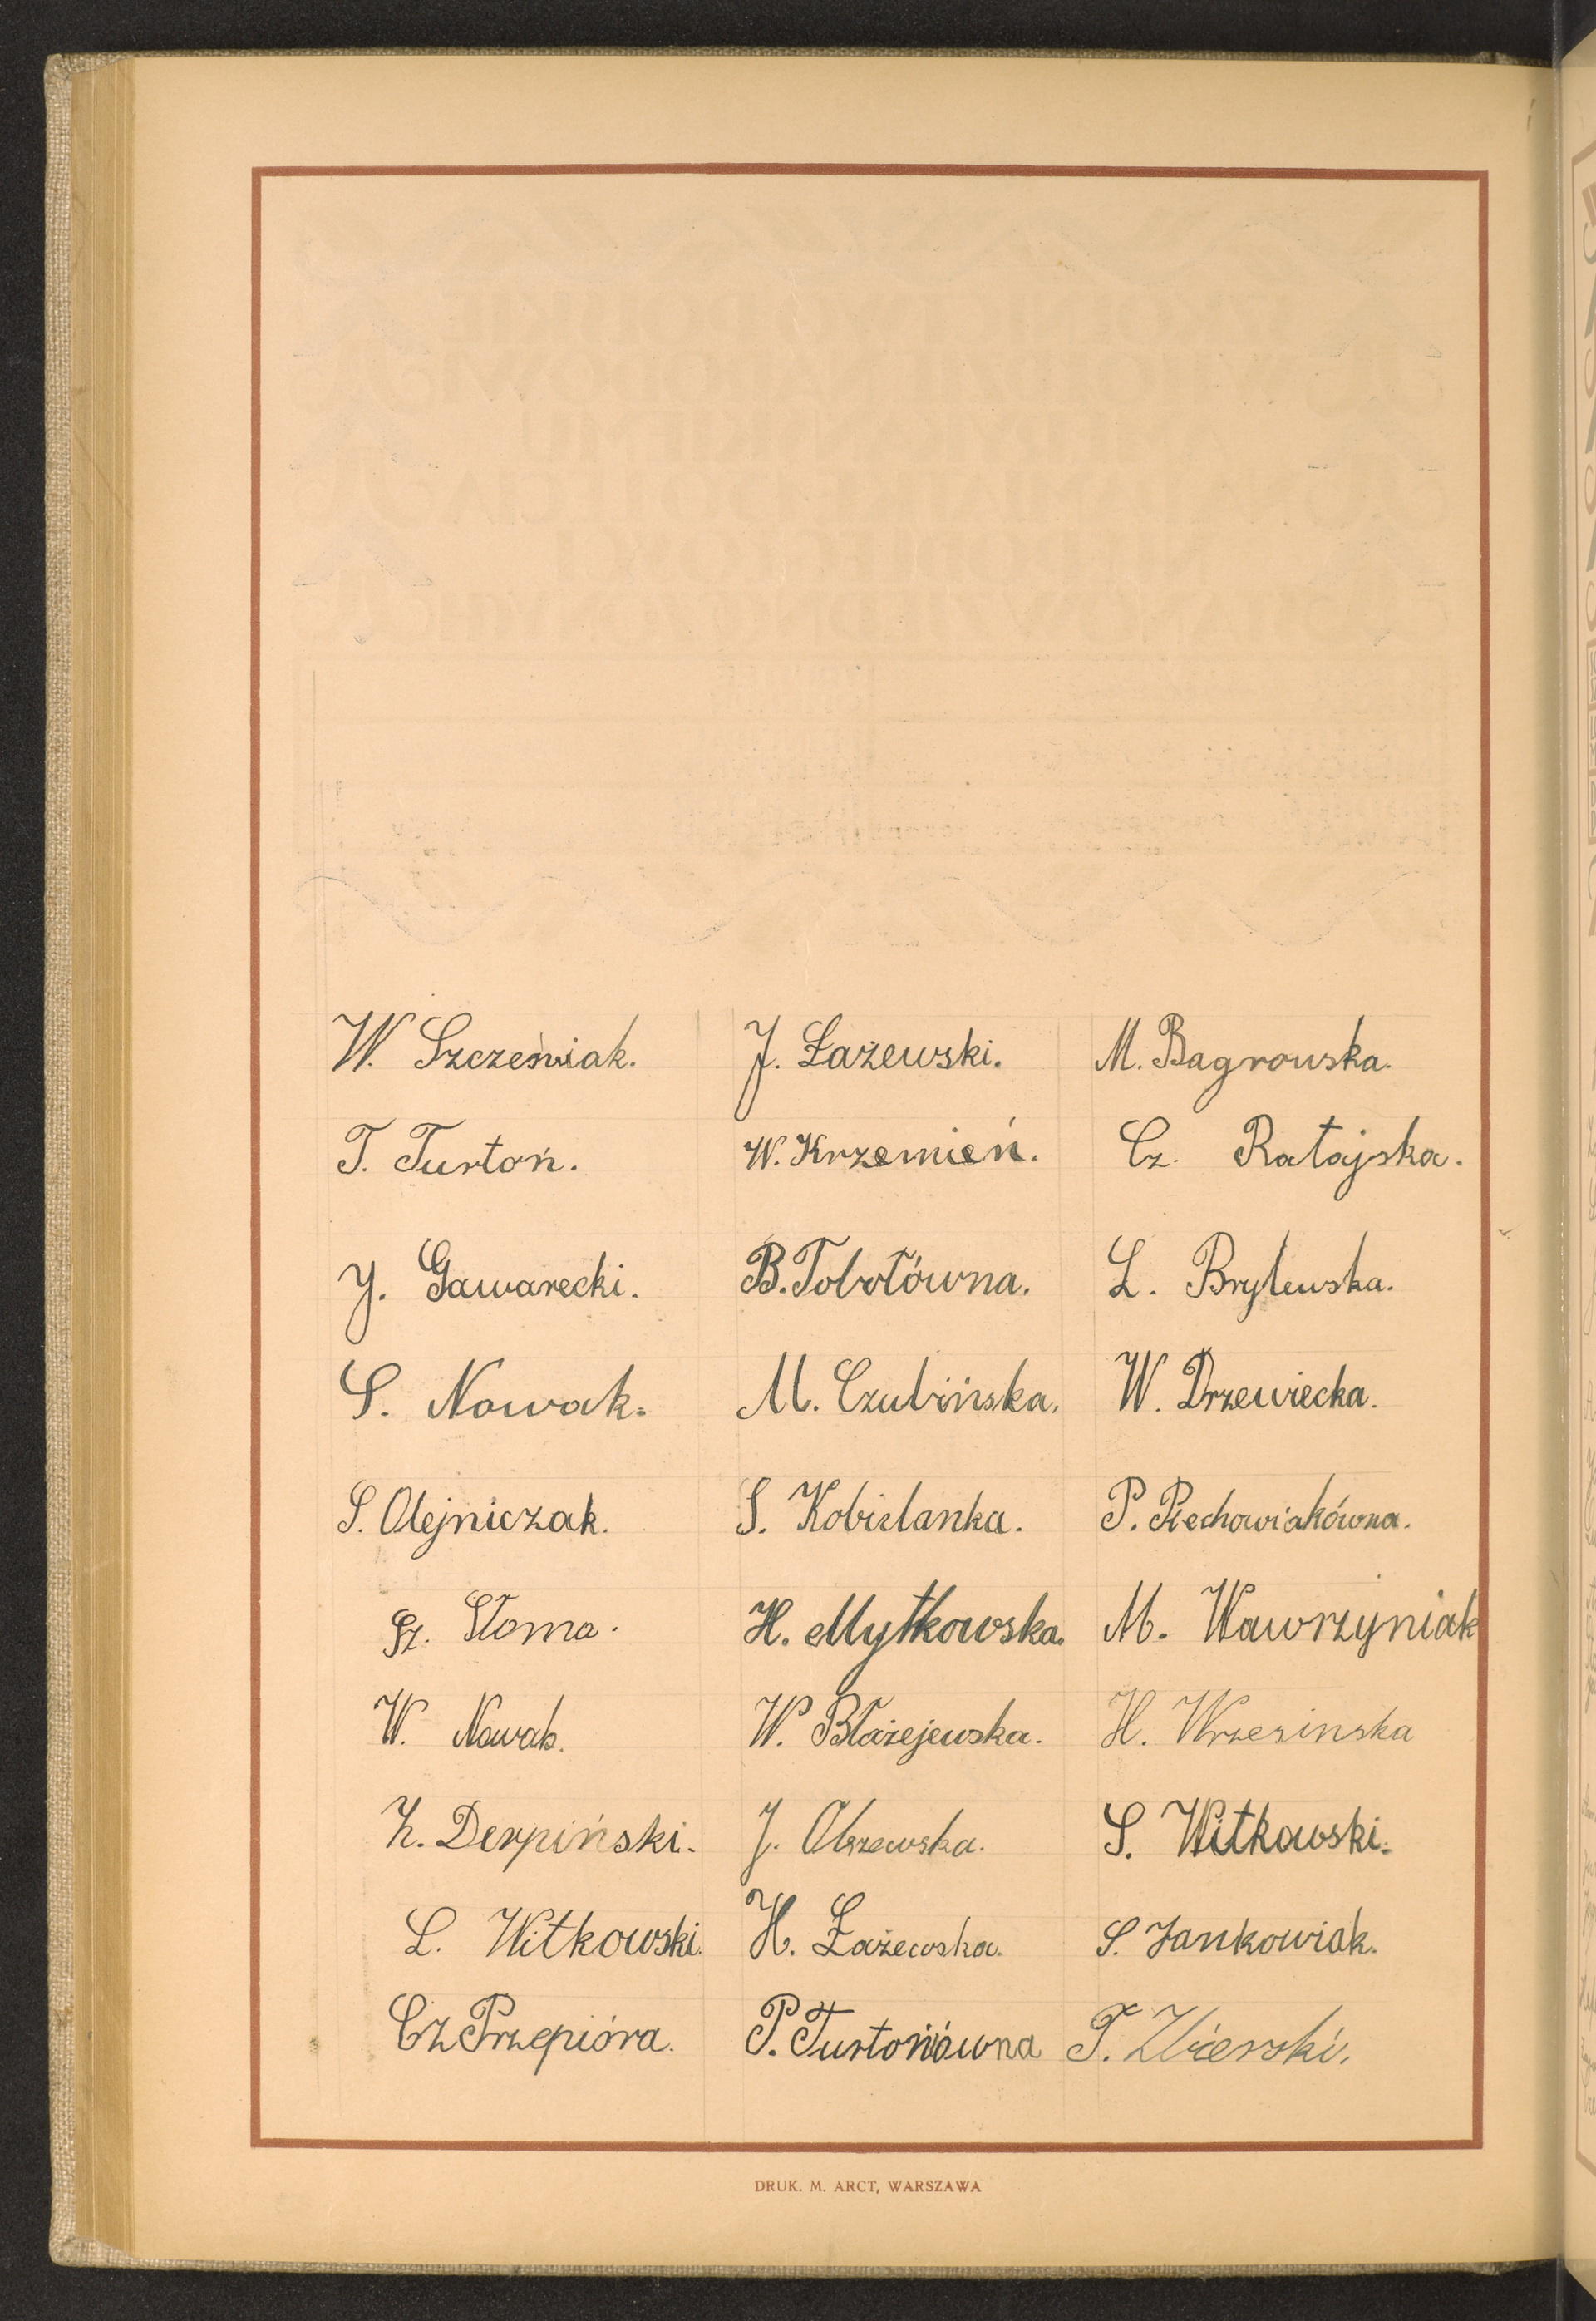 W. Szcześniak. J. Łażewski. M. Bagrowska.
T. Turtoń. W. Krzemień. Cz. Ratajska.
J. Gawarecki. B. Tobołówna. L. Brylewska.
S. Nowak. M. Czubińska. W. Drzewiecka.
S. Olejniczak. S. Kobielanka. P. Piechowiakówna.
Sz. Słoma. H. Mytkowska. M. Wawrzyniak
W. Nowak. W. Błażejewska. H. Wrzesinska
Z. Derpiński. J. Olszewska. S. Witkowski.
L. Witkowski. H. Łażewska. S. Jankowiak.
Cz Przepióra. P. Turtoniówna T. Zbierski.
DRUK. M. ARCT, WARSZAWA